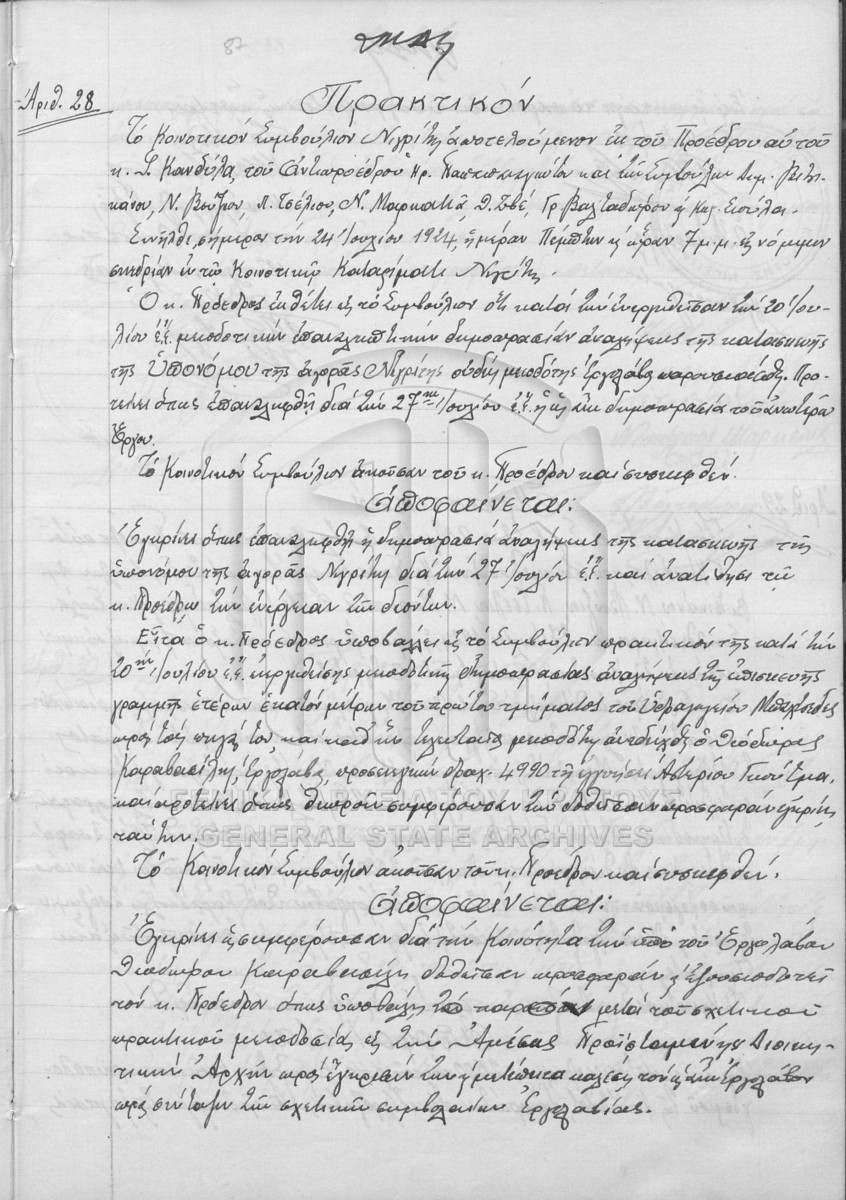 87
Ἀριθ. 28
Πρακτικόν
Τὸ Κοινοτικὸν Συμβούλιον Νιγρίτης ἀποτελούμενον ἐκ τοῦ Προέδρου αὐτοῦ
κ. Κανδύλα, τοῦ Ἀντιπροέδρου καὶ τῶν Συμβούλων Δημ.
Ν. Βούζιου, Τσέλιου, Ν. Μαρκατᾶ, Δ. Γρ. Βαλταδώρου
Συνῆλθε σήμερον τὴν 24 Ἰουλίου 1924, ἡμέραν Πέμπτην κ ὥραν 7 μ.μ. εἰς νόμιμον
συνεδρίαν ἐν τῷ Κοινοτικῷ Καταστήματι Νιγρίτης.
Ὁ κ. Πρόεδρος ἐκθέτει εἰς τὸ Συμβούλιον ὅτι κατὰ τὴν ἐνεργηθεῖσαν τὴν 20 Ἰου-
λίου ἐ.ἔ. μειοδοτικὴν ἐπαναληπτικὴν δημοπρασίαν ἀναλήψεως τῆς κατασκευῆς
τῆς ὑπονόμου τῆς ἀγορᾶς Νιγρίτης οὐδεὶς μειοδότης ἐργολάβος παρουσιάσθη. Προ-
τείνει ὅπως ἐπαναληφθῇ διὰ τὴν 27ην Ἰουλίου ἐ.ἔ. ἡ δημοπρασία τοῦ ἀνωτέρω
ἔργου.
Τὸ Κοινοτικὸν Συμβούλιον ἀκοῦσαν τοῦ κ. Προέδρου καὶ συσκεφθέν.
Ἀποφαίνεται:
Ἐγκρίνει ὅπως ἐπαναληφθῇ ἡ δημοπρασία ἀναλήψεως τῆς κατασκευῆς τῆς
ὑπονόμου τῆς ἀγορᾶς Νιγρίτης διὰ τὴν 27 Ἰουλίου ἐ.ἔ. καὶ ἀνατίθησι τῷ
κ. Προέδρῳ τὴν ἐνέργειαν τῶν δεόντων.
Εἶτα ὁ κ. Πρόεδρος ὑποβάλλει εἰς τὸ Συμβούλιον πρακτικὸν τῆς κατὰ τὴν
20ὴν Ἰουλίου ἐ.ἔ. ἐνεργηθείσης μειοδοτικῆς δημοπρασίας ἀναλήψεως τῆς ἐπισκευῆς
γραμμῆς ἑτέρων ἑκατὸν μέτρων τοῦ πρώτου τμήματος τοῦ Ὑδραγωγείου
πρὸς τὰς πηγάς του, καὶ καθ' ἣν τελευταῖος μειοδότης ἀνεδείχθη ὁ Θεόδωρος
Καραβασίλης, ἐργολάβος, προσενεγκὼν δραχ. 4990 τῇ ἐγγυήσει Ἀστερίου Γκούτμα.
καὶ προτείνει ὅπως θεωροῦν συμφέρουσαν τὴν δοθεῖσαν προσφορὰν ἐγκρίνει
ταύτην.
Τὸ Κοινοτικὸν Συμβούλιον ἀκοῦσαν τοῦ κ. Προέδρου καὶ συσκεφθέν.
Ἀποφαίνεται:
Ἐγκρίνει ὡς συμφέρουσαν διὰ τὴν Κοινότητα τὴν ὑπὸ τοῦ Ἐργολάβου
Θεοδώρου Καραβασίλη δοθεῖσαν προσφορὰν κ ἐξουσιοδοτεῖ
τὸν κ. Πρόεδρον ὅπως ὑποβάλῃ μετὰ τοῦ σχετικοῦ
πρακτικοῦ μειοδοσίας εἰς τὴν Ἀμέσως Προϊσταμένην Διοικη-
τικὴν Ἀρχὴν πρὸς ἔγκρισίν των κ μετέπειτα καλέσῃ τὸν ἐργολάβον
πρὸς σύνταξιν τοῦ σχετικοῦ συμβολαίου Ἐργολαβίας.
ΓΕΝΙΚΑ ΑΡΧΕΙΑ ΤΟΥ ΚΡΑΤΟΥΣ
GENERAL STATE ARCHIVES